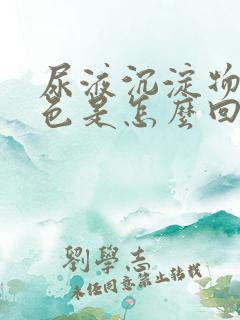 尿液沉淀物
色是怎麼回
劉學志
未經同意禁止轉載